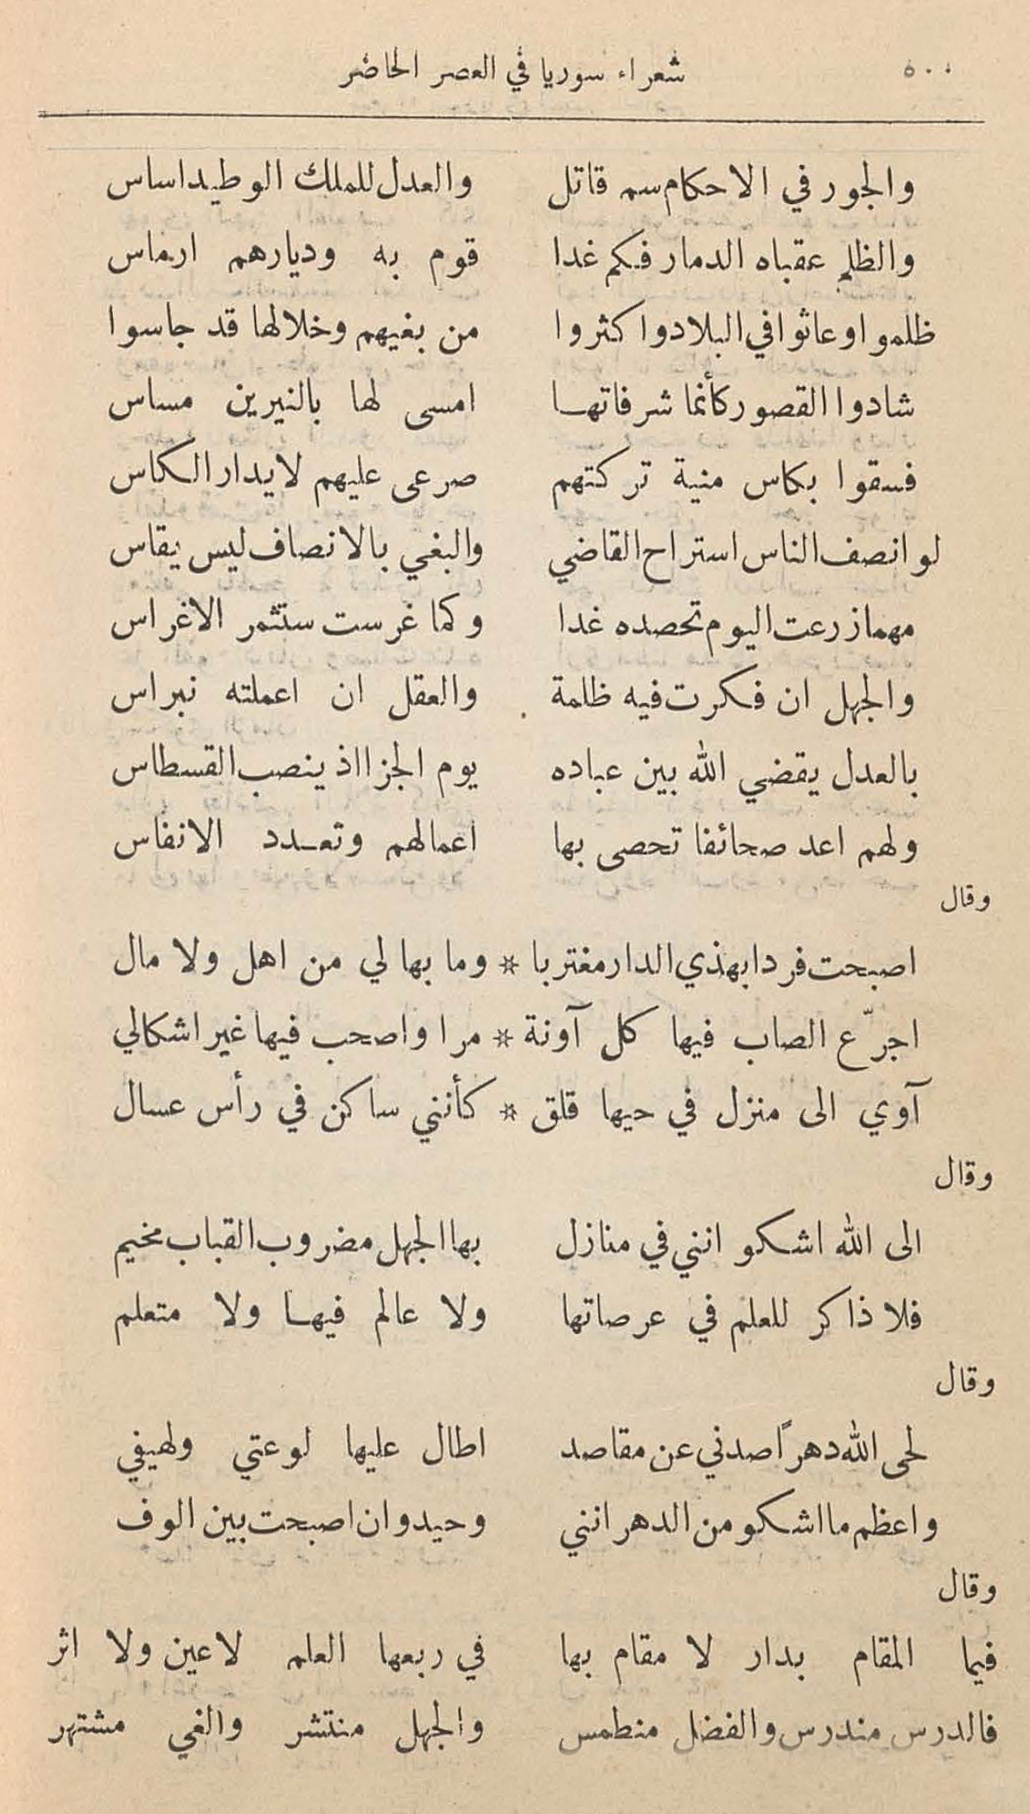 ٥٠٠ شعراء سوريا في العصر الحاضر
والجور في الاحكام سم قاتل والعدل للملك الوطيد اساس
والظلم عقباه الدمار فكم غدا قوم به وديارهم ارماس
ظلموا وعاثوا في البلاد واكثروا من بغيهم وخلالها قد جاسوا
شادوا القصور كأنما شرفاتها امسى لها بالنيرين مساس
فسقوا بكاس منية تركتهم صرعى عليهم لا يدار الكاس
لو انصف الناس استراح القاضي والبغي بالانصاف ليس يقاس
مهما زرعت اليوم تحصده غدا وكما غرست ستثمر الاغراس
والجهل ان فكرت فيه ظلمة والعقل ان اعملته نبراس
بالعدل يقضي الله بين عباده يوم الجزا اذ ينصب القسطاس
ولهم اعد صحائفا تحصى بها اعمالهم وتعدد الانفاس
وقال
اصبحت فردا بهذي الدار مغتربا * وما بها لي من اهل ولا مال
اجرّع الصاب فيها كل آونة * مرا واصحب فيها غير اشكالي
آوي الى منزل في حيها قلق * كأنني ساكن في رأس عسال
وقال
الى الله اشكو انني في منازل بها الجهل مضروب القباب مخيم
فلا ذاكر للعلم في عرصاتها ولا عالم فيها ولا متعلم
وقال
لحى الله دهراً صدني عن مقاصد اطال عليها لوعتي ولهيفي
واعظم ما اشكو من الدهر انني وحيد وان اصبحت بين الوف
وقال
فيما المقام بدار لا مقام بها في ربعها العلم لا عين ولا اثر
فالدرس مندرس والفضل منطمس والجهل منتشر والغي مشتهر